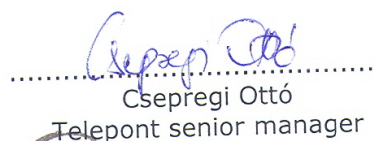 Csepregi Ottó
Csepregi Ottó
Telepont senior manager